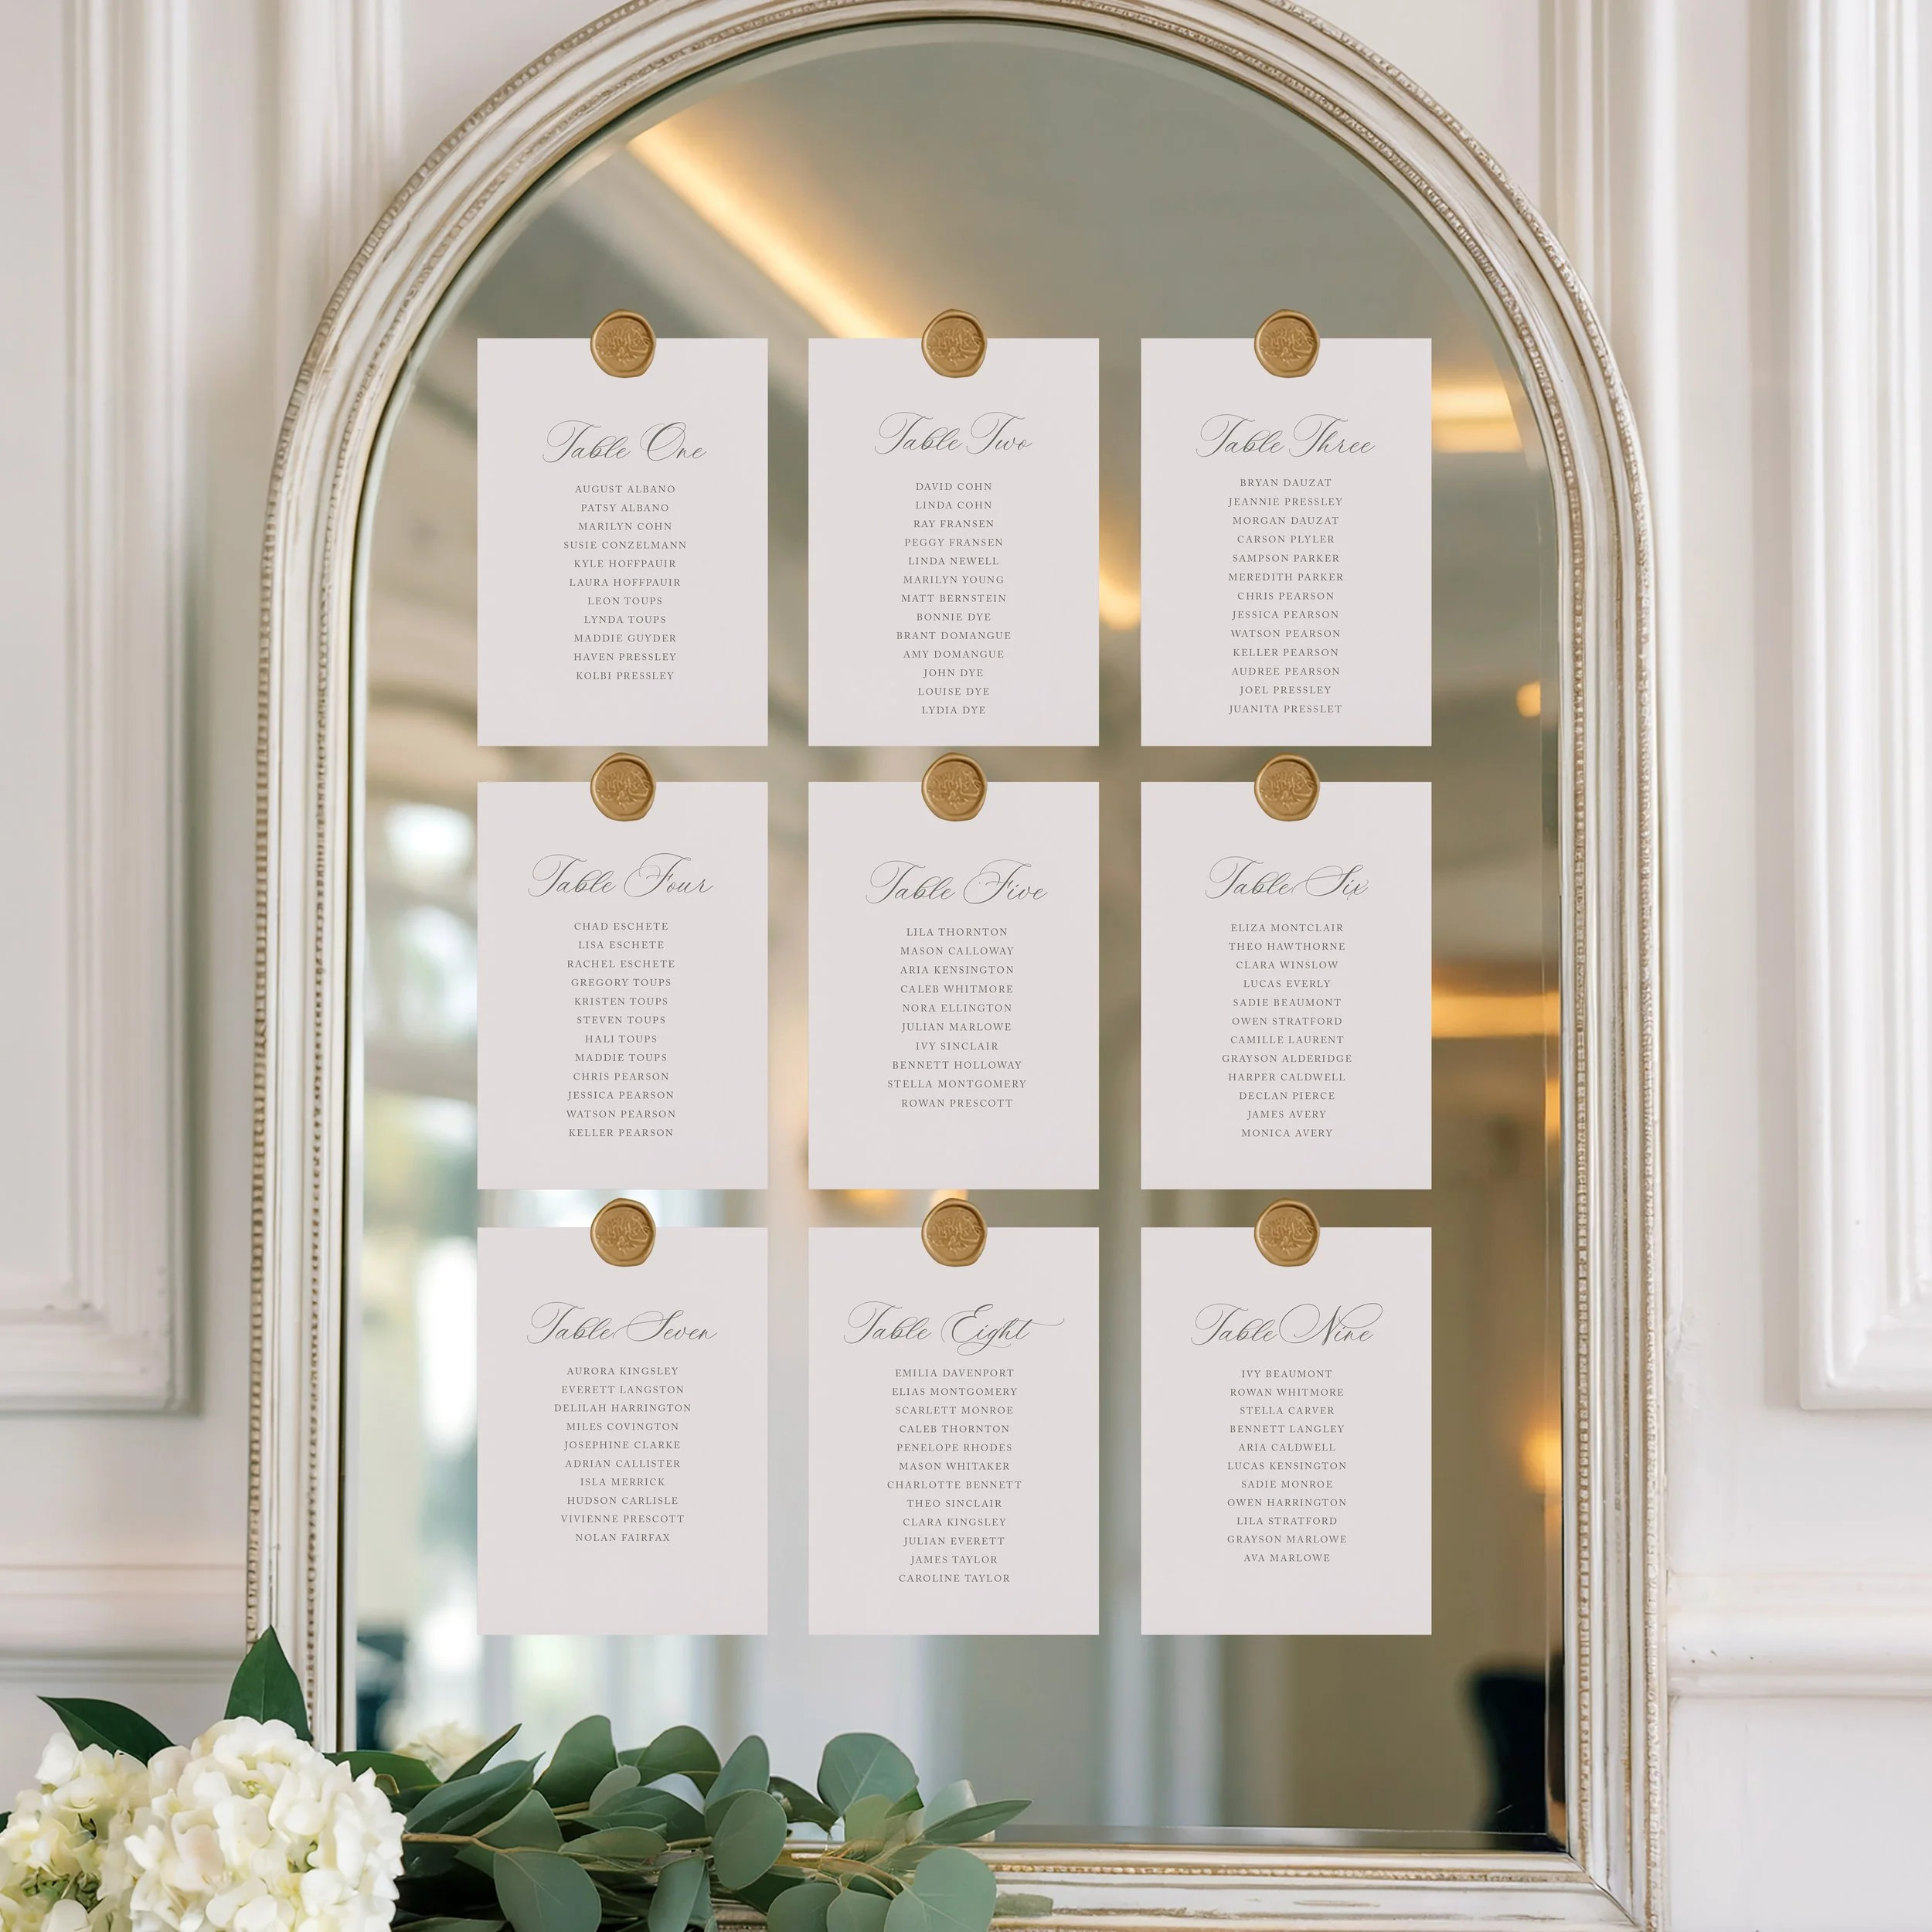 Table One
AUGUST ALBANO
PATSY ALBANO
MARILYN COHN
SUSIE CONZELMANN
KYLE HOFFPAUIR
LAURA HOFFPAUIR
LEON TOUPS
LYNDA TOUPS
MADDIE GUYDER
HAVEN PRESSLEY
KOLBI PRESSLEY
Table Two
DAVID COHN
LINDA COHN
RAY FRANSEN
PEGGY FRANSEN
LINDA NEWELL
MARILYN YOUNG
MATT BERNSTEIN
BONNIE DYE
BRANT DOMANGUE
AMY DOMANGUE
JOHN DYE
LOUISE DYE
LYDIA DYE
Table Three
BRYAN DAUZAT
JEANNIE PRESSLEY
MORGAN DAUZAT
CARSON PLYLER
SAMPSON PARKER
MEREDITH PARKER
CHRIS PEARSON
JESSICA PEARSON
WATSON PEARSON
KELLER PEARSON
AUDREE PEARSON
JOEL PRESSLEY
JUANITA PRESSLET
Table Four
CHAD ESCHETE
LISA ESCHETE
RACHEL ESCHETE
GREGORY TOUPS
KRISTEN TOUPS
STEVEN TOUPS
HALI TOUPS
MADDIE TOUPS
CHRIS PEARSON
JESSICA PEARSON
WATSON PEARSON
KELLER PEARSON
Table Five
LILA THORNTON
MASON CALLOWAY
ARIA KENSINGTON
CALEB WHITMORE
NORA ELLINGTON
JULIAN MARLOWE
IVY SINCLAIR
BENNETT HOLLOWAY
STELLA MONTGOMERY
ROWAN PRESCOTT
Table Six
ELIZA MONTCLAIR
THEO HAWTHORNE
CLARA WINSLOW
LUCAS EVERLY
SADIE BEAUMONT
OWEN STRATFORD
CAMILLE LAURENT
GRAYSON ALDERIDGE
HARPER CALDWELL
DECLAN PIERCE
JAMES AVERY
MONICA AVERY
Table Seven
AURORA KINGSLEY
EVERETT LANGSTON
DELILAH HARRINGTON
MILES COVINGTON
JOSEPHINE CLARKE
ADRIAN CALLISTER
ISLA MERRICK
HUDSON CARLISLE
VIVIENNE PRESCOTT
NOLAN FAIRFAX
Table Eight
EMILIA DAVENPORT
ELIAS MONTGOMERY
SCARLETT MONROE
CALEB THORNTON
PENELOPE RHODES
MASON WHITAKER
CHARLOTTE BENNETT
THEO SINCLAIR
CLARA KINGSLEY
JULIAN EVERETT
JAMES TAYLOR
CAROLINE TAYLOR
Table Nine
IVY BEAUMONT
ROWAN WHITMORE
STELLA CARVER
BENNETT LANGLEY
ARIA CALDWELL
LUCAS KENSINGTON
SADIE MONROE
OWEN HARRINGTON
LILA STRATFORD
GRAYSON MARLOWE
AVA MARLOWE